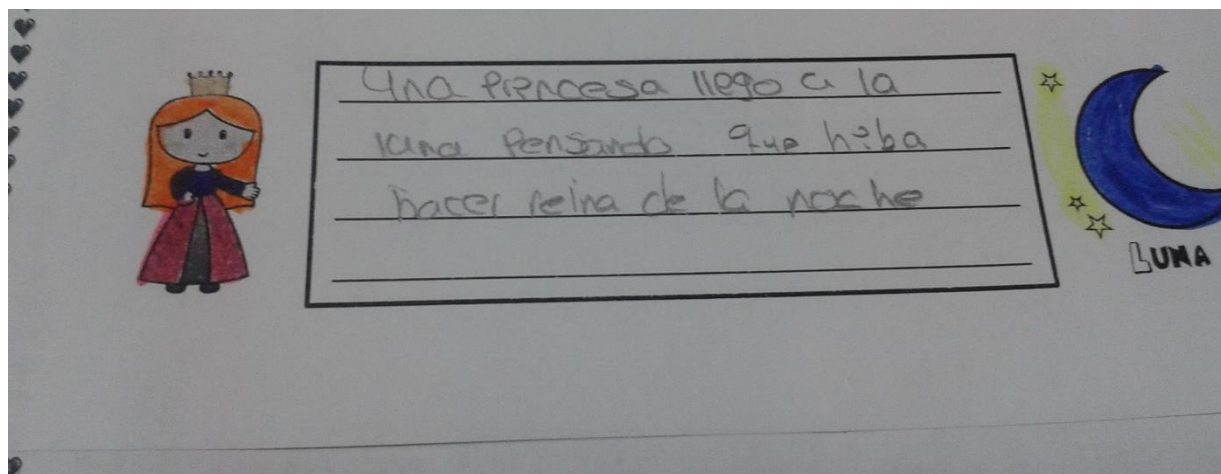 Una prencesa llego a la
luna Pensando que hiba
hacer reina de la noche
LUNA